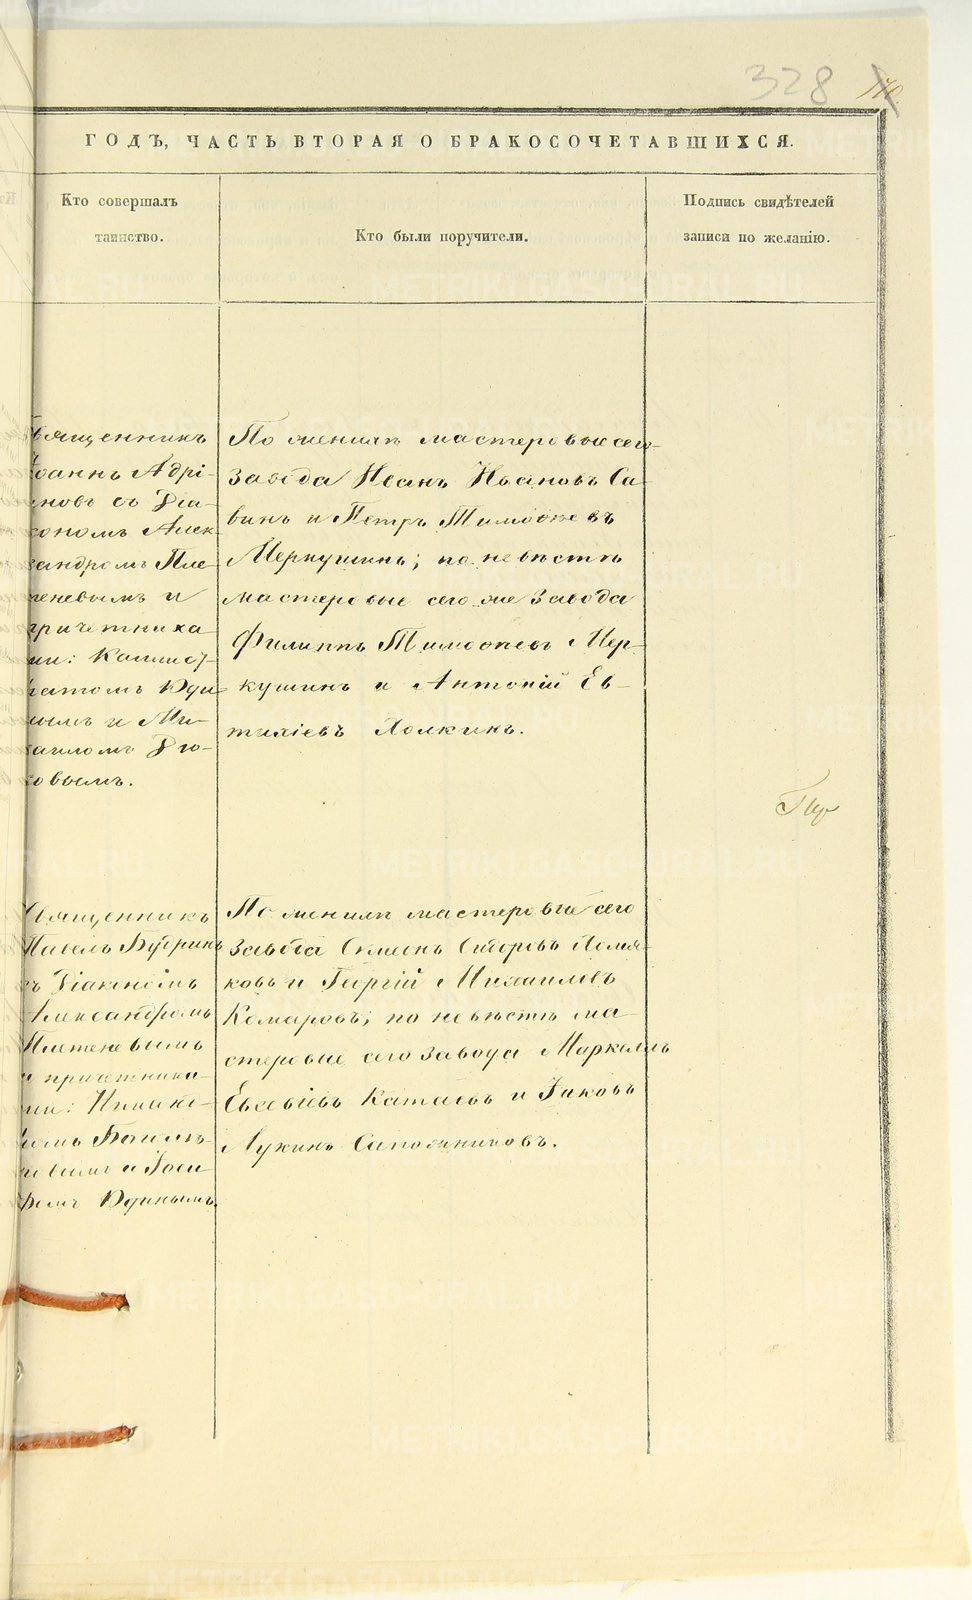 328
ГОДЪ, ЧАСТЬ ВТОРАЯ О БРАКОСОЧЕТАВШИХСЯ.
Кто совершалъ
таинство.
Кто были поручители.
Подпись свидѣтелей
записи по желанію.
Священникъ
Іоаннъ Адрі-
ановъ съ Діа-
кономъ Алек-
сандромъ Пле-
теневымъ и
причетника-
ми: Каллист-
ратомъ Юди-
нымъ и Ми-
хаиломъ Дю-
ковымъ.
По женихѣ мастеровые сего
завода Иванъ Ивановъ Са-
винъ и Петръ Тимофеевъ
Меркушинъ; по невѣстѣ
мастеровые сего же завода
Филиппъ Тимофеевъ Мер-
кушинъ и Антоній Ев-
тихіевъ Холкинъ.
Священникъ
Павелъ Будринъ
съ Діакономъ
Александромъ
Плетеневымъ
и причетника-
ми:
и Іоси-
фомъ Юдинымъ.
По женихѣ мастеровые сего
завода Симеонъ Сидоровъ Холмя-
ковъ и Георгій Михаиловъ
Комаровъ; по невѣстѣ ма-
стеровые сего завода Маркеллъ
Евсевіевъ Катаевъ и Іаковъ
Лукинъ Сапожниковъ.
METRIKI.GASO-URAL.RU